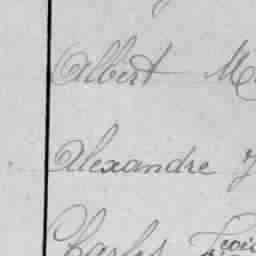 Albert M
Alexandre
Charles Louis